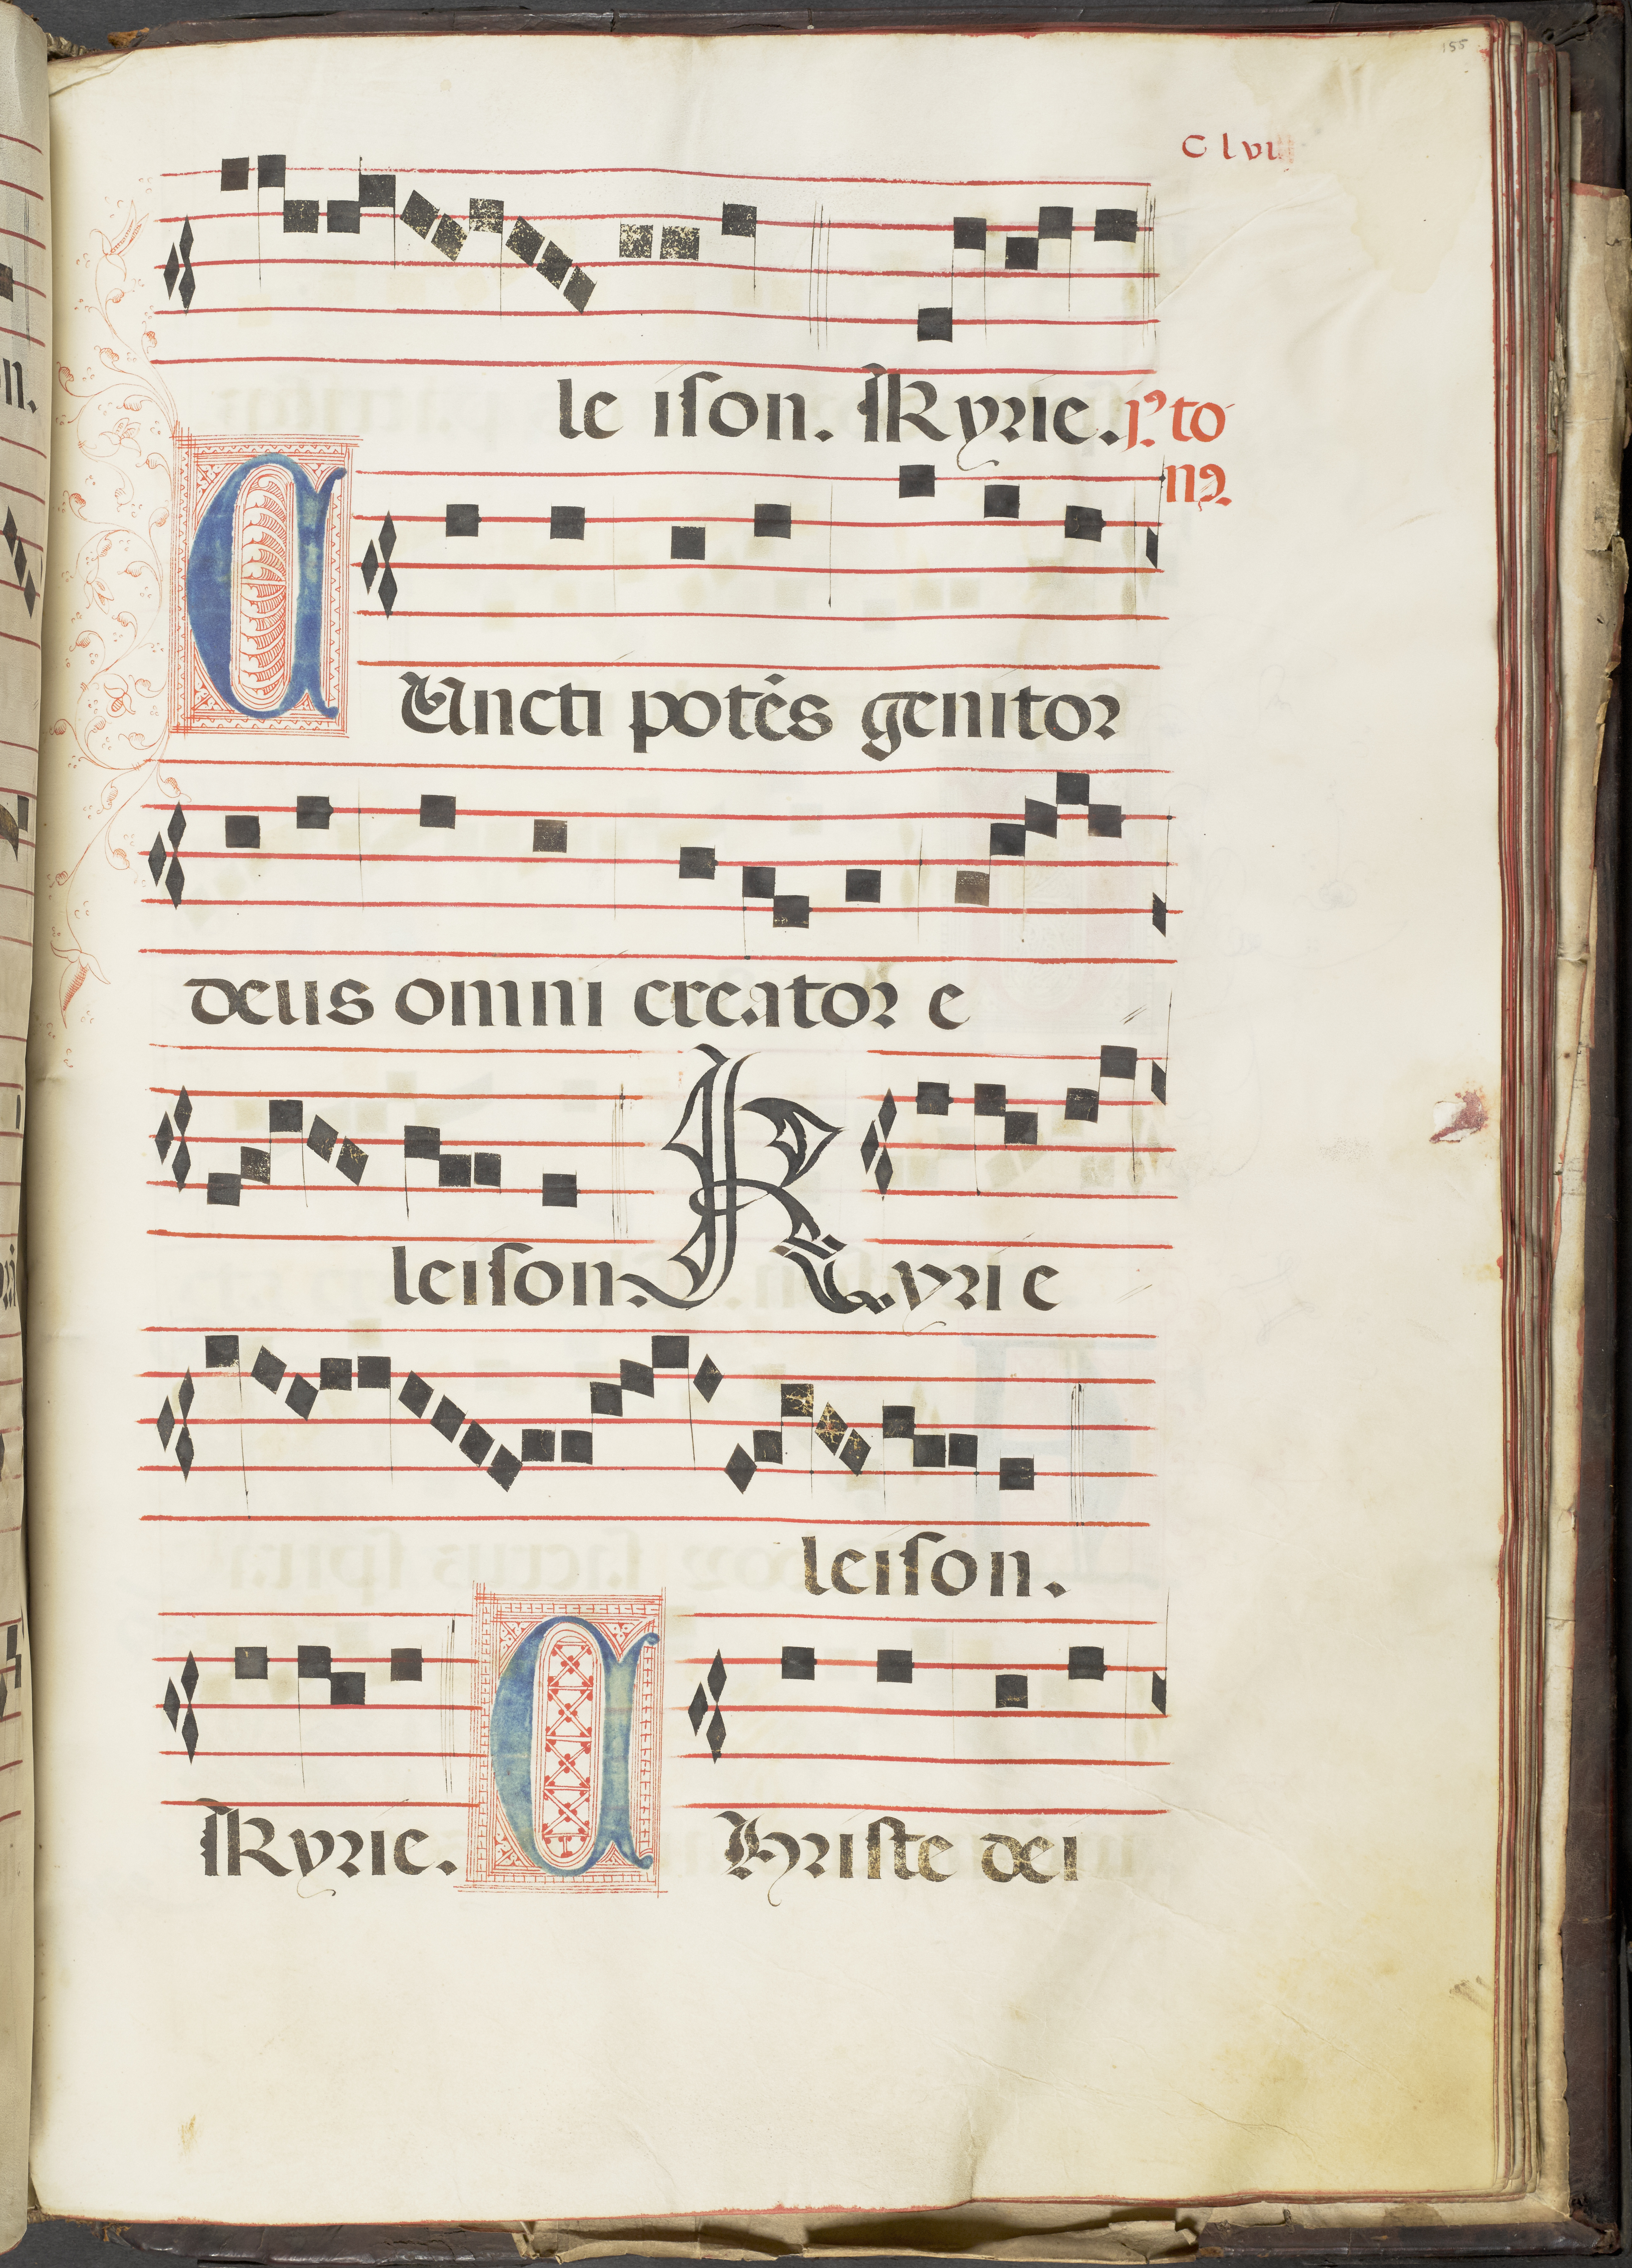 155
C lvii
le iſon. Kyrie. p? to
n9.
CUncti potēs genitor
deus omni creator e
leiſon. Kyrie
leiſon.
Kyrie. CHriſte dei